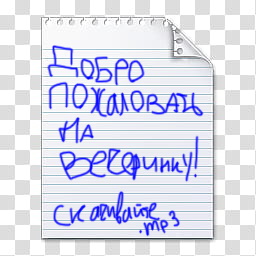 Добро
пожаловать
на
вечеринку!
скачивайте
.mp3